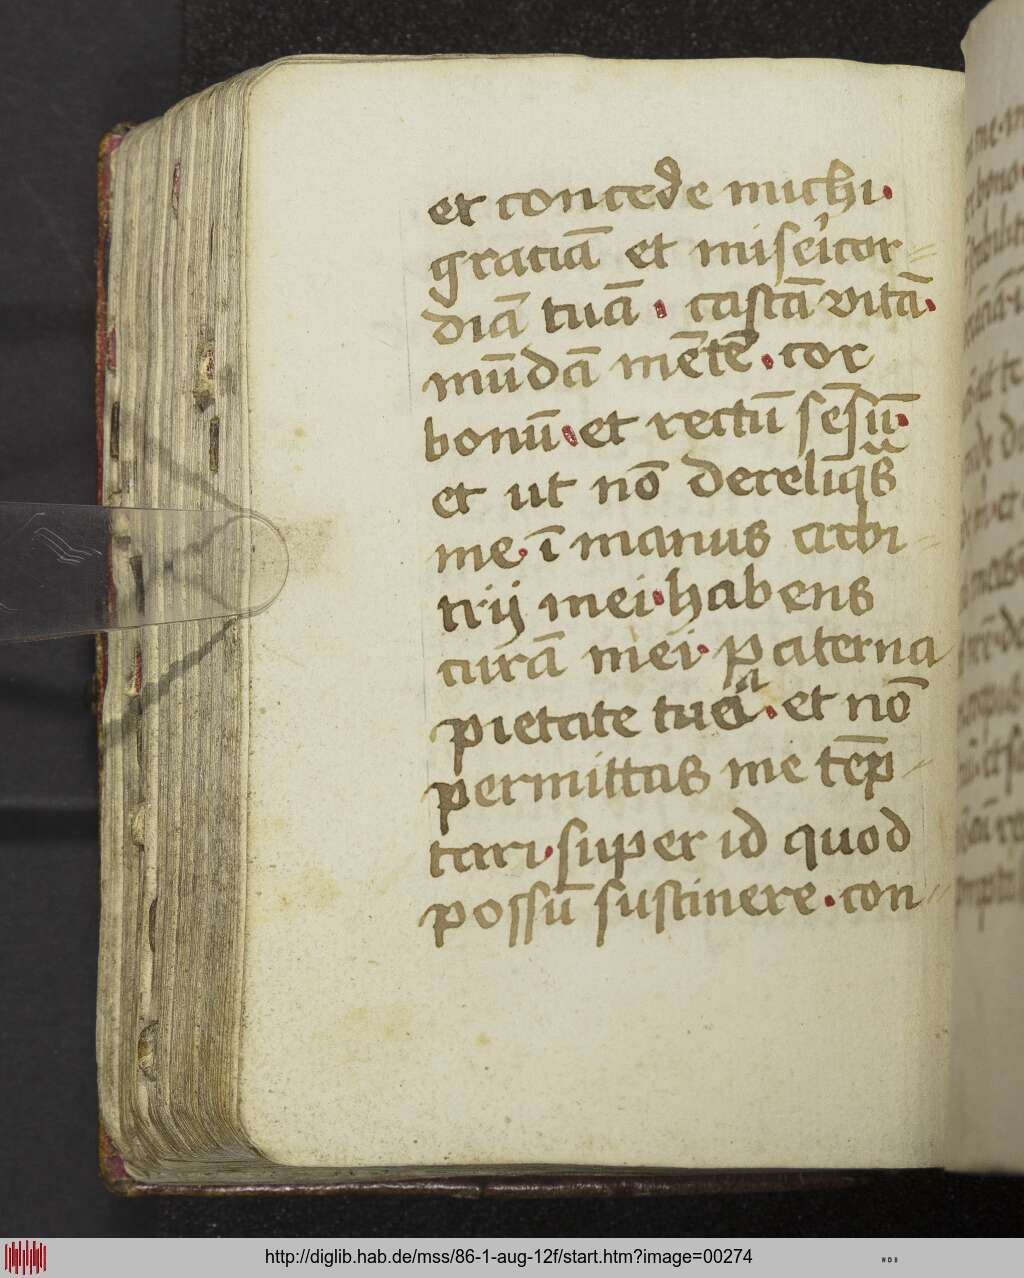 et concede michi·
graciā et mise͛icor=
diā tuā · castā vitā·
mūdā mētē · cor
bonū · et rectū sēsū·
et ut nō derelīqͧs
me · ī manus arbi=
trij mei · habens
curā mei · paterna
pietate tuaͣ · et nō
permittas me tēp=
tari · super id quod
possū sustinere · con=
http://diglib.hab.de/mss/86-1-aug-12f/start.htm?image=00274